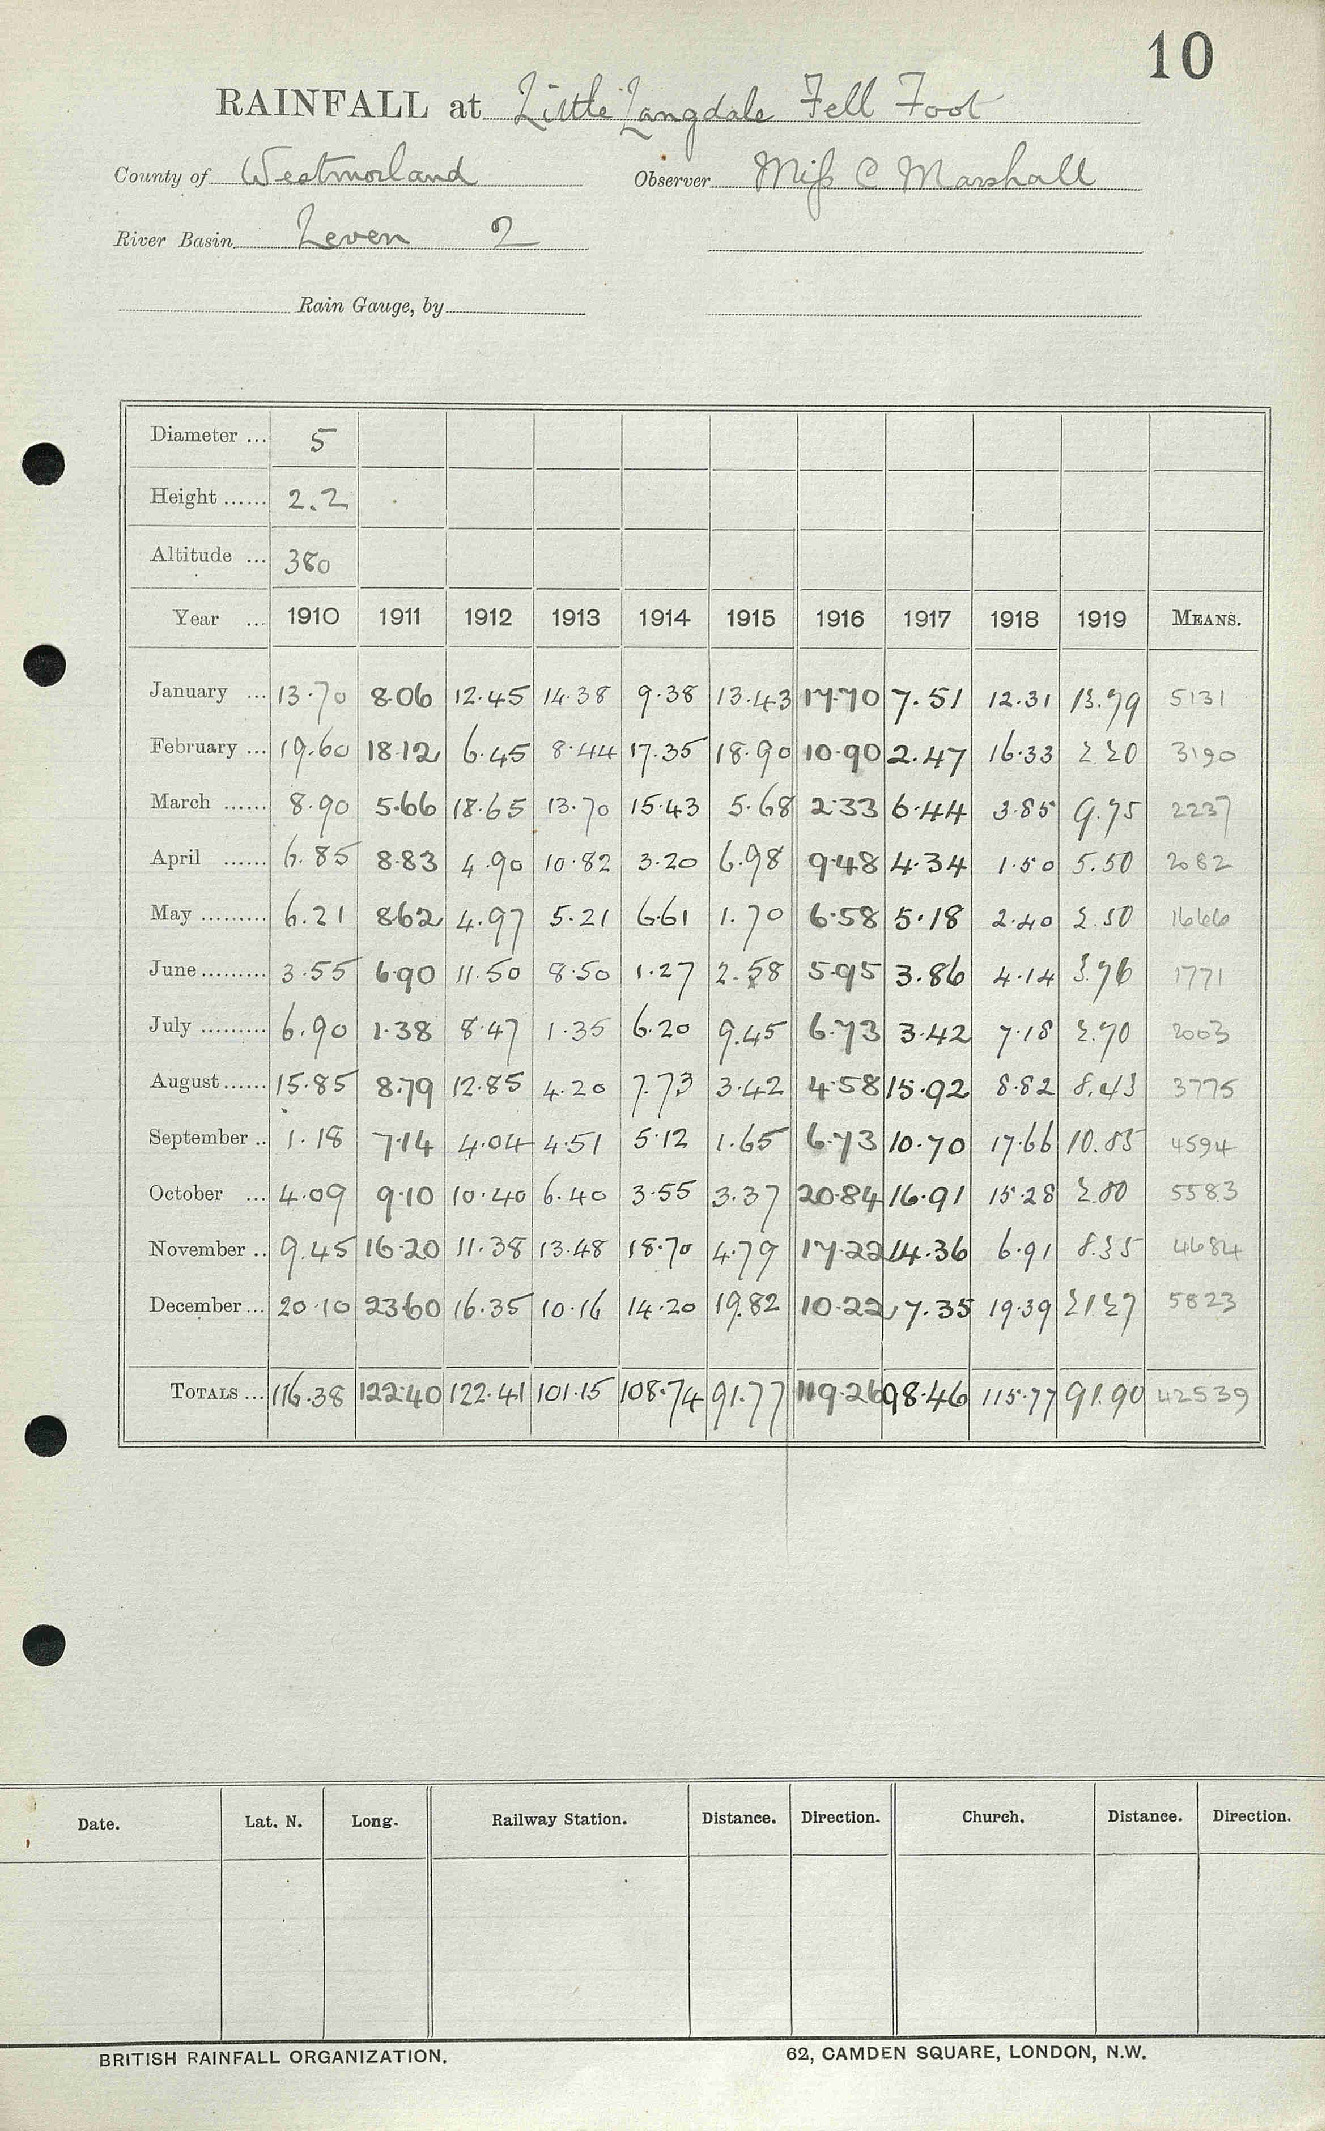 10
RAINFALL at Little Langdale Fell Foot
County of Westmorland Observer Miss C Marshall
River Basin Leven 2
Rain Gauge, by
Diameter ... 5
Height ...... 2.2
Altitude ... 380
Year ... 1910 1911 1912 1913 1914 1915 1916 1917 1918 1919 MEANS.
January ... 13.70 8.06 12.45 14.38 9.38 13.43 17.70 7.51 12.31 13.79 5131
February ... 19.60 18.12 6.45 8.44 17.35 18.90 10.90 2.47 16.33 2.20 3190
March ...... 8.90 5.66 18.65 13.70 15.43 5.68 2.33 6.44 3.85 9.75 2237
April ...... 6.85 8.83 4.90 10.82 3.20 6.98 9.48 4.34 1.50 5.50 2082
May ......... 6.21 8.62 4.97 5.21 6.61 1.70 6.58 5.18 2.40 2.50 1666
June ......... 3.55 6.90 11.50 8.50 1.27 2.58 5.95 3.86 4.14 3.76 1771
July ......... 6.90 1.38 8.47 1.35 6.20 9.45 6.73 3.42 7.18 2.70 2003
August ...... 15.85 8.79 12.85 4.20 7.73 3.42 4.58 15.92 8.82 8.43 3775
September .. 1.18 7.14 4.04 4.51 5.12 1.65 6.73 10.70 17.66 10.85 4594
October ... 4.09 9.10 10.40 6.40 3.55 3.37 20.84 16.91 15.28 2.80 5583
November .. 9.45 16.20 11.38 13.48 18.70 4.79 17.22 14.36 6.91 8.35 4684
December ... 20.10 23.60 16.35 10.16 14.20 19.82 10.22 7.35 19.39 21.27 5823
TOTALS ... 116.38 122.40 122.41 101.15 108.74 91.77 119.26 98.46 115.77 91.90 42539
Date. Lat. N. Long. Railway Station. Distance. Direction. Church. Distance. Direction.
BRITISH RAINFALL ORGANIZATION. 62, CAMDEN SQUARE, LONDON, N.W.